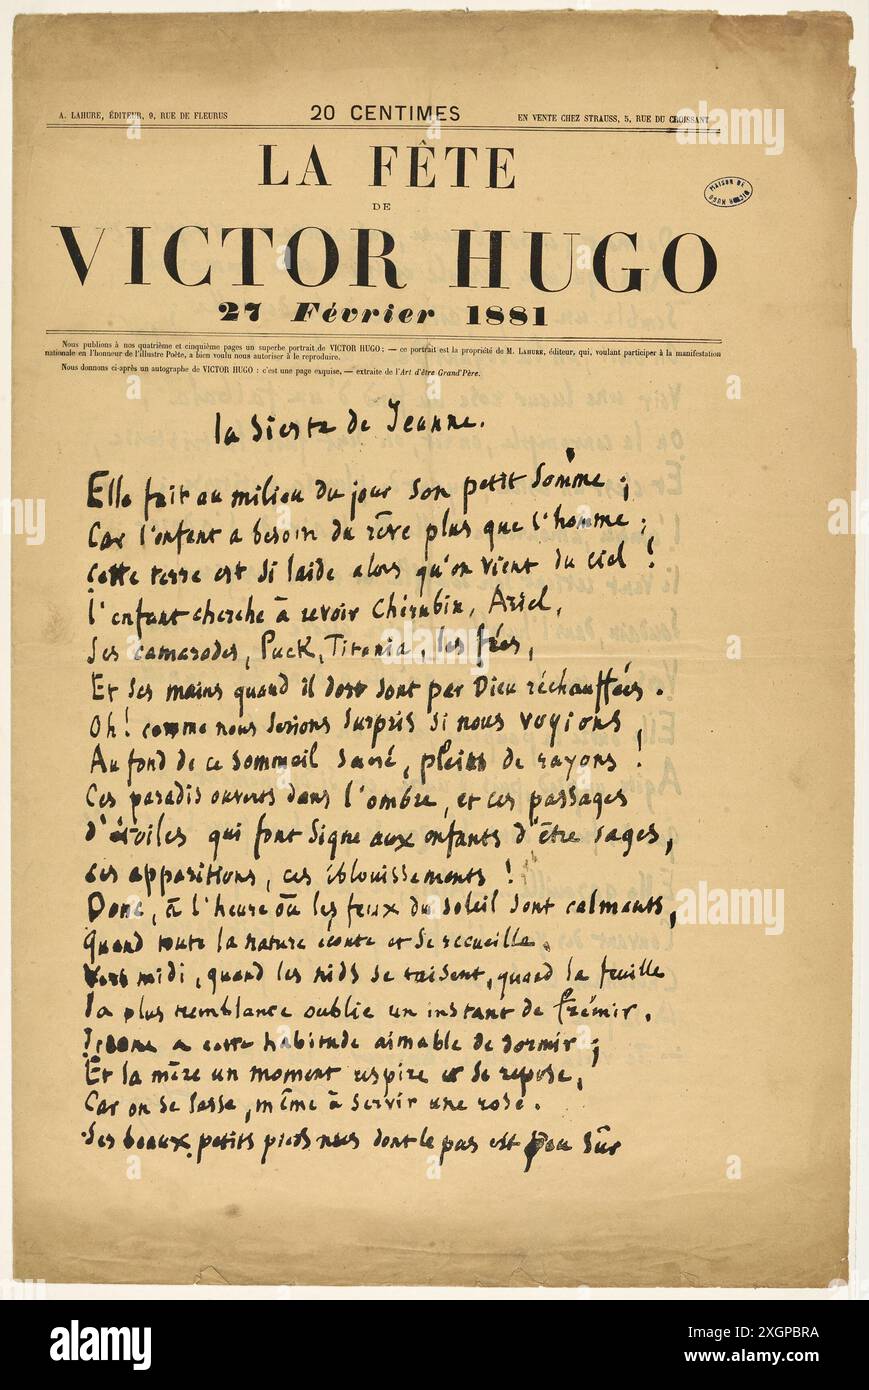 A. LAHURE, ÉDITEUR, 9, RUE DE FLEURUS
20 CENTIMES
EN VENTE CHEZ STRAUSS, 5, RUE DU CROISSANT
LA FÊTE
DE
VICTOR HUGO
27 Février 1881
MAISON DE VICTOR HUGO
Nous publions à nos quatrième et cinquième pages un superbe portrait de VICTOR HUGO; — ce portrait est la propriété de M. LAHURE, éditeur, qui, voulant participer à la manifestation
nationale en l'honneur de l'illustre Poète, a bien voulu nous autoriser à le reproduire.
Nous donnons ci-après un autographe de VICTOR HUGO : c'est une page exquise, — extraite de l'Art d'être Grand'Père.
la Sieste de Jeanne.
Elle fait au milieu du jour son petit somme ;
Car l'enfant a besoin du rêve plus que l'homme ;
Cette terre est si laide alors qu'on vient du ciel !
L'enfant cherche à revoir Chérubin, Ariel,
Ses camarades, Puck, Titania, les fées,
Et ses mains quand il dort sont par Dieu réchauffées.
Oh ! comme nous serions surpris si nous voyions,
Au fond de ce sommeil sacré, plein de rayons !
Ces paradis ouverts dans l'ombre, et ces passages
d'étoiles qui font signe aux enfants d'être sages,
ces apparitions, ces éblouissements !
Donc, à l'heure où les feux du soleil sont calmants,
Quand toute la nature écoute et se recueille,
Vers midi, quand les nids se taisent, quand la feuille
la plus tremblante oublie un instant de frémir,
Jeanne a cette habitude aimable de dormir ;
Et la mère un moment respire et se repose,
Car on se lasse, même à servir une rose.
Ses beaux petits pieds nus dont le pas est peu sûr
alamy
alamy
Image ID: 2XGPBRA
www.alamy.com